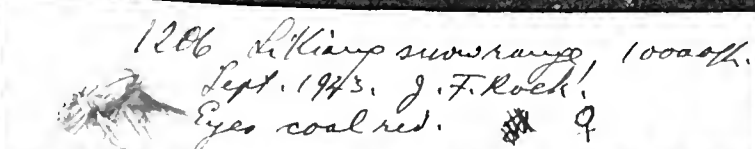 1206 LiKiang snowrange, 10000ft.
Sept. 1943. J. F. Rock.
Eyes coal red. ♀